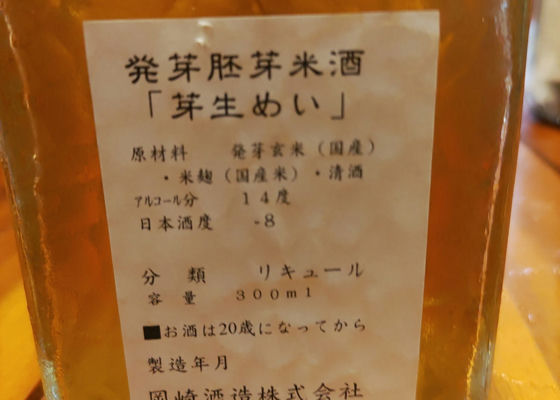 発芽胚芽米酒
「芽生めい」
原材料　発芽玄米（国産）
・米麹（国産米）・清酒
アルコール分　14度
日本酒度　-8
分　類　リキュール
容　量　300ml
■お酒は20歳になってから
製造年月
岡崎酒造株式会社